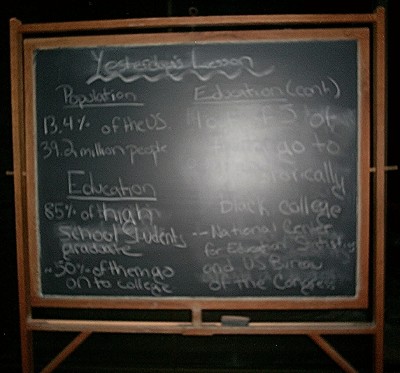 Yesterday's Lesson
Population
13.4% of the US
39.2 million people
Education
85% of high
school students
graduate
30% of them go
on to college
Education (cont)
of
go to
historically
black college
--National Center
for Education Statistics
and US Bureau
of the Congress